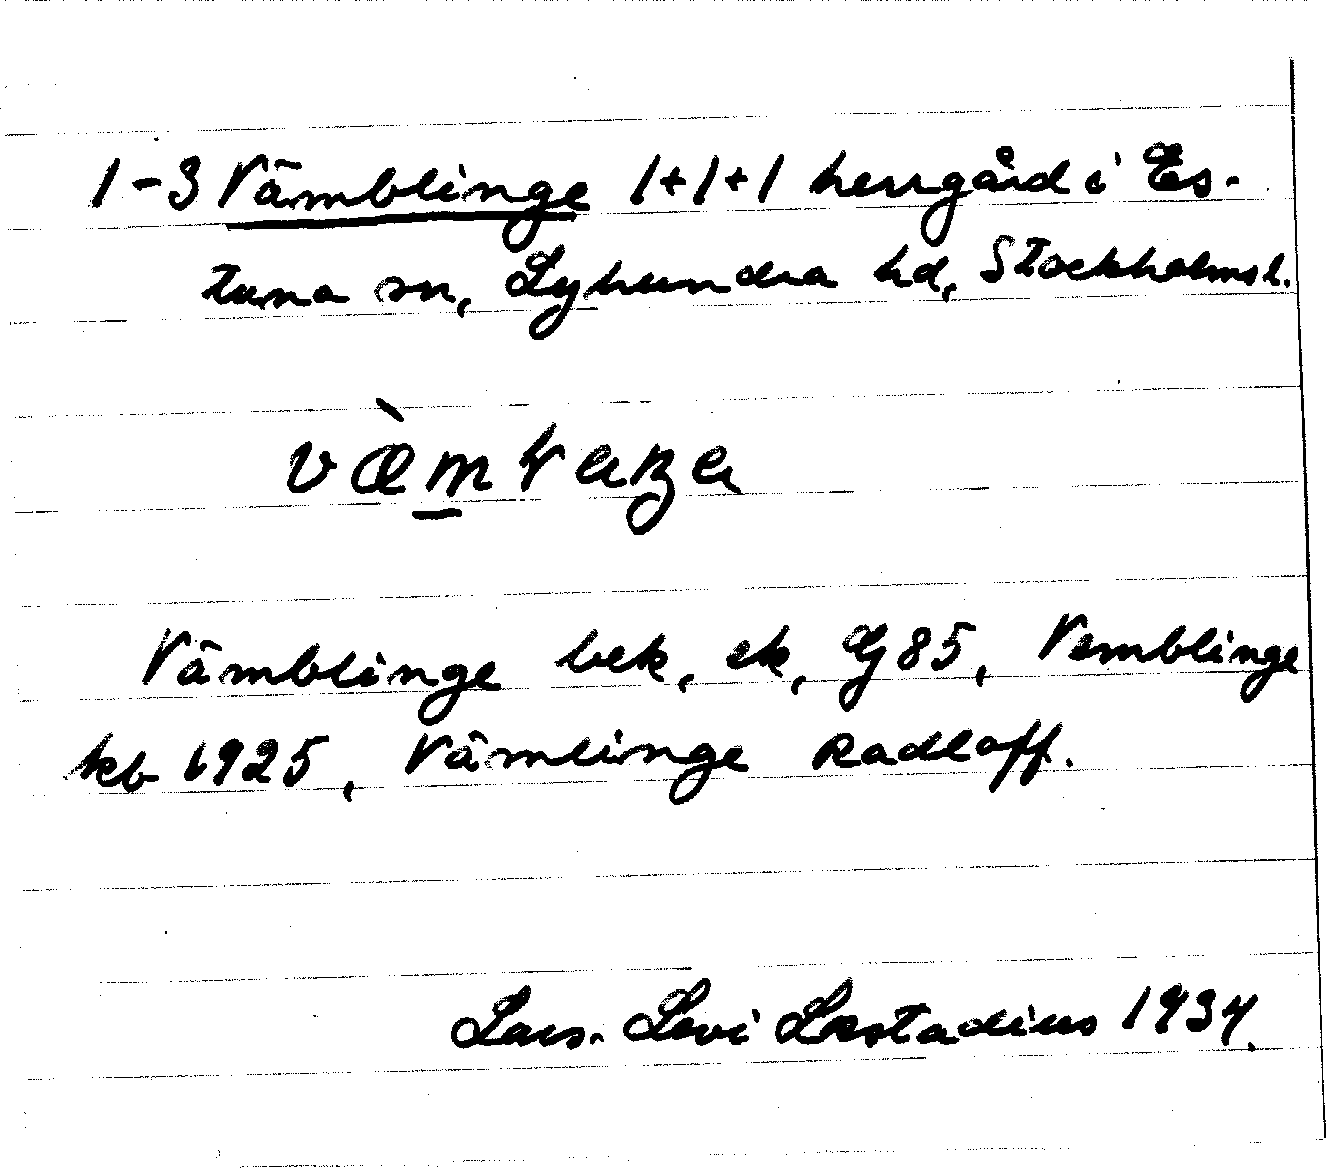 1-3 Vämblinge 1+1+1 herrgård i Es-
tuna sn, Lyhundra hd, Stockholms l.
Vämblinge bek, ek, GJ 85, Vemblinge
kb 1925, Vämlinge Radloff.
Lars-Levi Læstadius 1934.